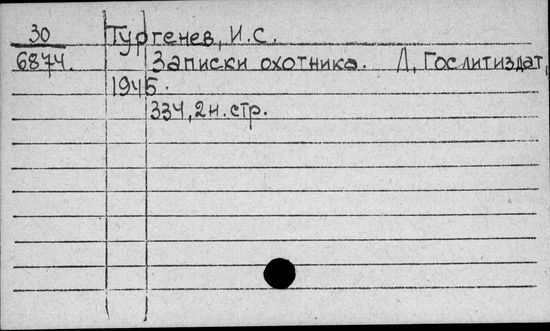 30 Тургенев, И.С.
6874. Записки охотника. Л, Гослитиздат,
1945.
334, 2н. стр.